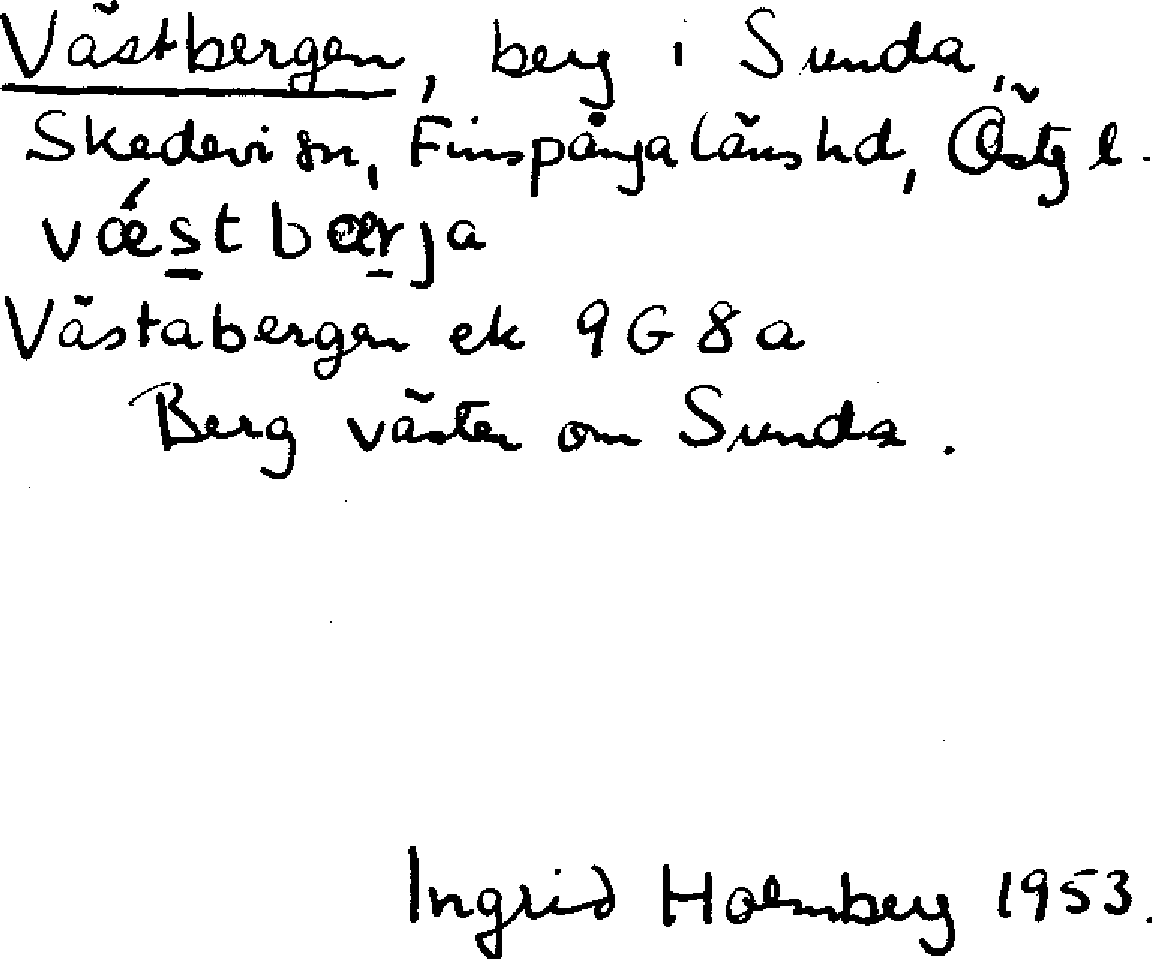 Västbergen, berg i Sunda,
Skedevi sn, Finspånga läns hd, Östg l.
vǽstbærja
Västabergen ek 9G8a
Berg väster om Sunda.
Ingrid Holmberg 1953.